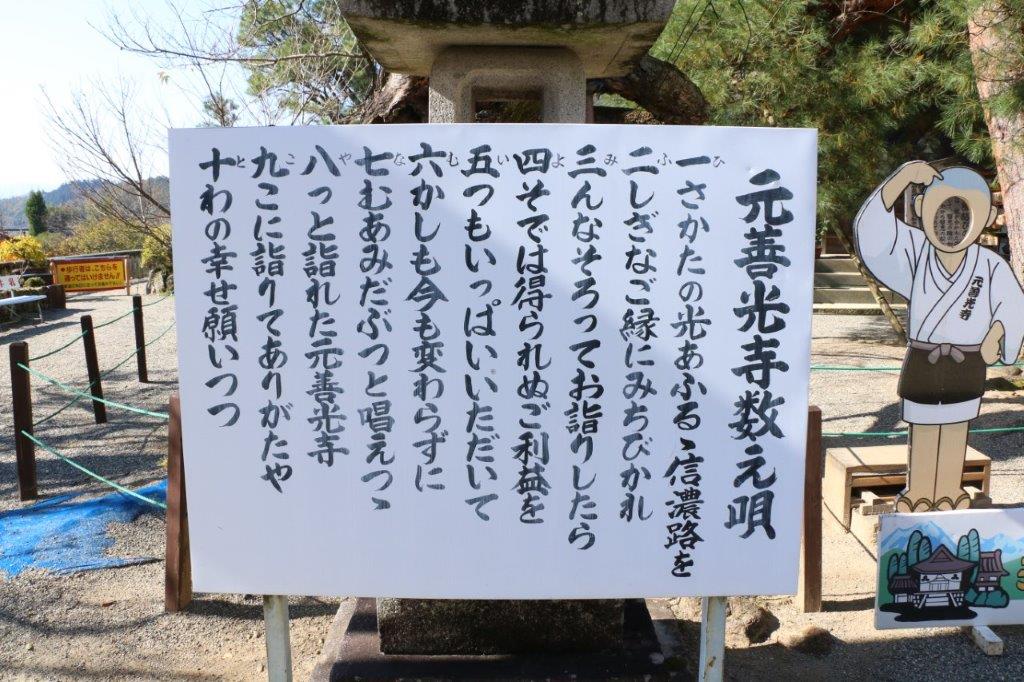 元善光寺数え唄
一さかたの光あふるゝ信濃路を
二しぎなご縁にみちびかれ
三んなそろってお詣りしたら
四そでは得られぬご利益を
五つもいっぱいいただいて
六かしも今も変わらずに
七むあみだぶつと唱えつゝ
八っと詣れた元善光寺
九こに詣りてありがたや
十わの幸せ願いつつ
ひ
ふ
み
よ
い
む
な
や
こ
と
歩行者は、こちらを
通ってはいけません!!
元善光寺